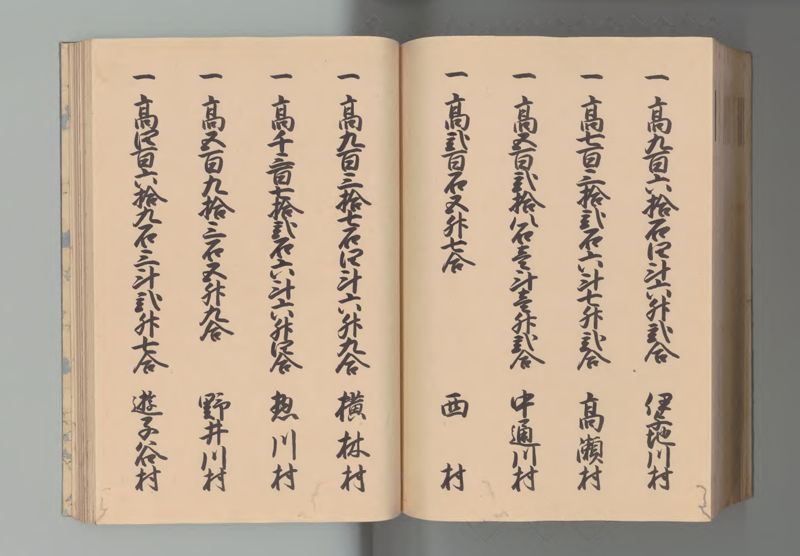 一 高九百六拾石四斗六升弐合 伊勢川村
一 高七百三拾弐石六斗七升弐合 高瀬村
一 高五百弐拾八石壱斗壱升弐合 中通川村
一 高弐百石五升七合 西村
一 高九百三拾七石四斗六升九合 横林村
一 高千三百七拾弐石六斗六升四合 惣川村
一 高五百九拾三石五升九合 野井川村
一 高四百六拾九石三斗弐升七合 遊子谷村